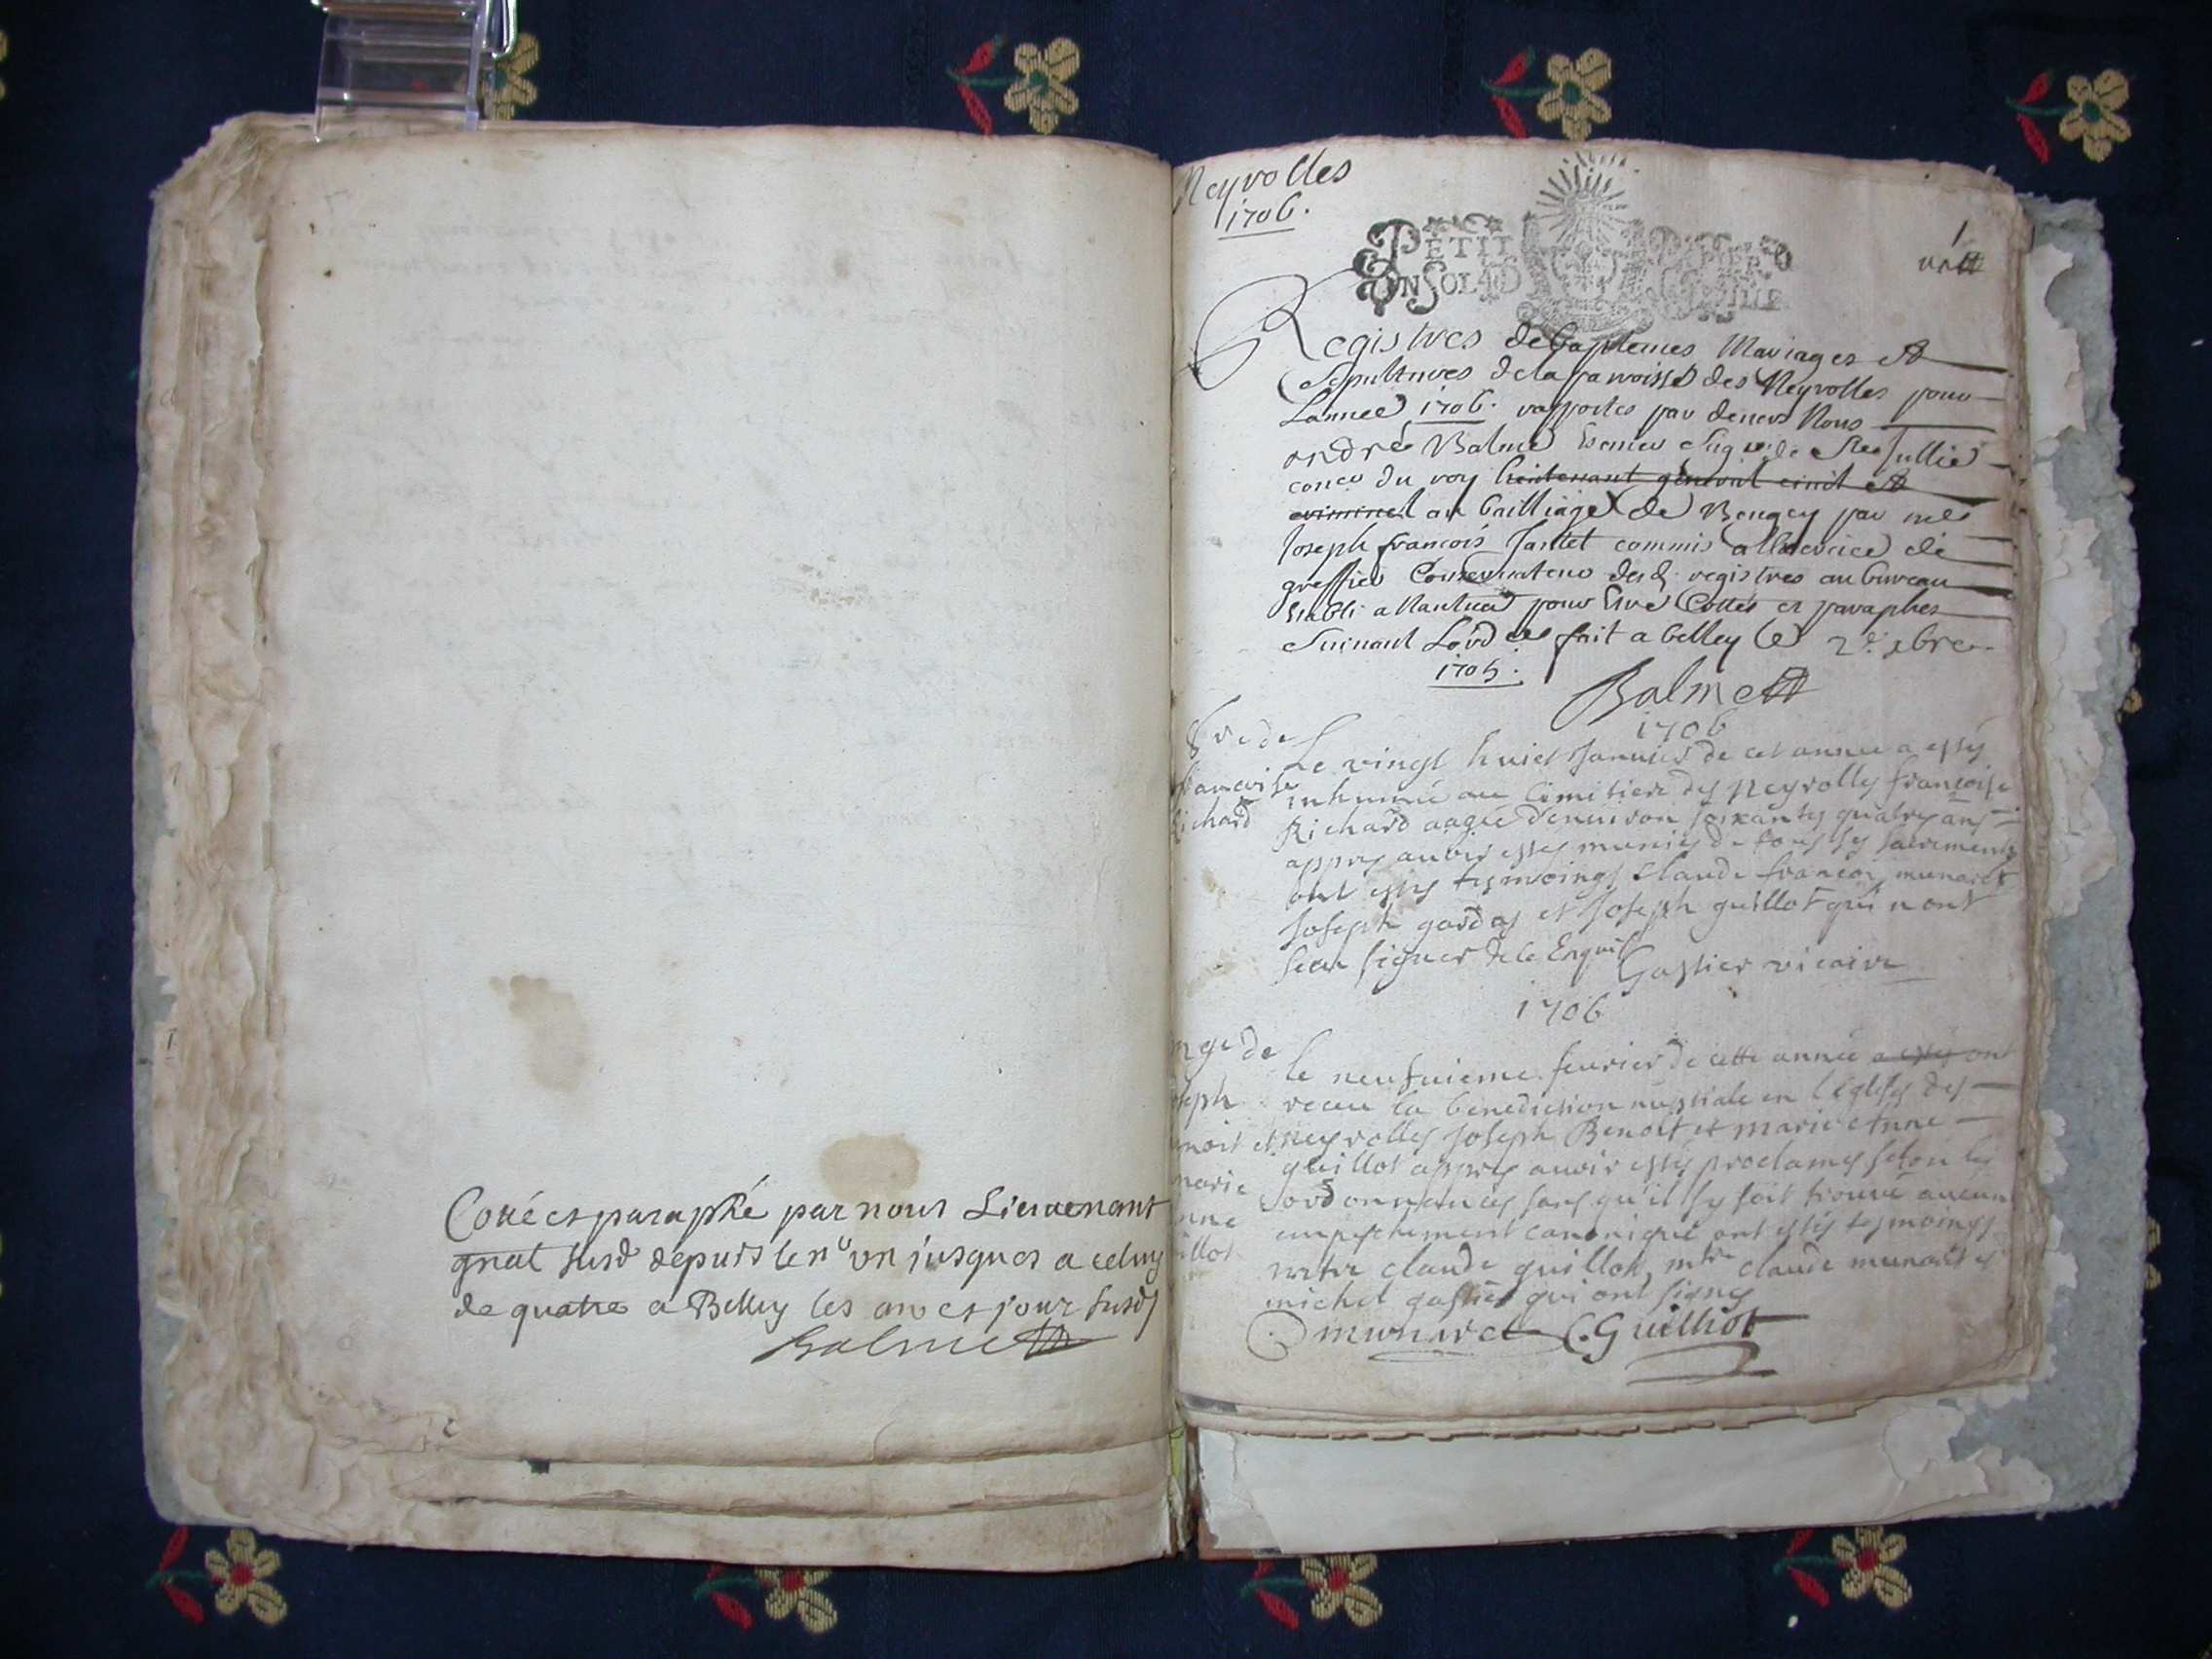 Cotté et paraphé par nous Lieutenant
gnal susd depuis le n° un jusques a celuy
de quatre a Belley les an et jour susds
Balme
Neyrolles
1706.
PETIT PAPIER
1
un
Registres de baptemes Mariages et
Sepultures de la parroisse des Neyrolles pour
Lannee 1706. rapportes par devers Nous
andré Balme Seigr de Ste Jullie
coner du roy lieutenant general civil et
criminel au bailliage de Beugey par me
Joseph francois Jantet commis a lexercice de
greffier Conservateur desd. registres au bureau
Establi a Nantua pour Estre Cottés et paraphes
Suivant Lord fait a belley le 2e xbre
1705.
Balme
1706
Sre de
francoise
Richard
Le vingt huict Januier de cet annee a estés
inhumé au Cimitiere des Neyrolles francoise
Richard aagée denuiron soixantes quatres ans
appres auoir estes munies de tous les sacrements
ont estes tesmoings Claude francois munaret
Joseph gardas et Joseph guillot qui n ont
sceu signer de le Enquis
Gastier vicaire
1706
mge de
Joseph
Benoit et
marie
anne
guillot
le neufuieme feurier de cette année a estes ont
receu la benediction nuptiale en l'eglises des
neyrolles Joseph Benoit et marie Anne
guillot appres auoir estés proclames selon les
ordonnances sans qu'il sy soit trouué aucun
empechement canonique ont estés tesmoings
claude guillot, mtre claude munaret et
michel gastier qui ont signes
munaret C. Guilliot